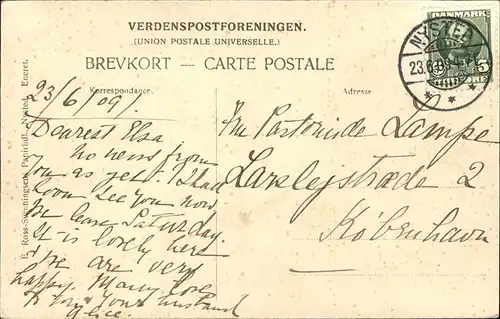 VERDENSPOSTFORENINGEN.
(UNION POSTALE UNIVERSELLE.)
BREVKORT — CARTE POSTALE
Korrespondance.
Adresse
DANMARK
5
ØRE
NYSTED
23.6.09
E. Ross-Swenningsens Papirhdl., Nysted. Eneret.
23/6/09.
Dearest Elsa
No news from
you as yet. I shall
soon see you now
we leave Saturday.
It is lovely here
& we are very
happy. Many love
to you & your husband
Alice.
Fru Lampe
Larslejstræde 2
København